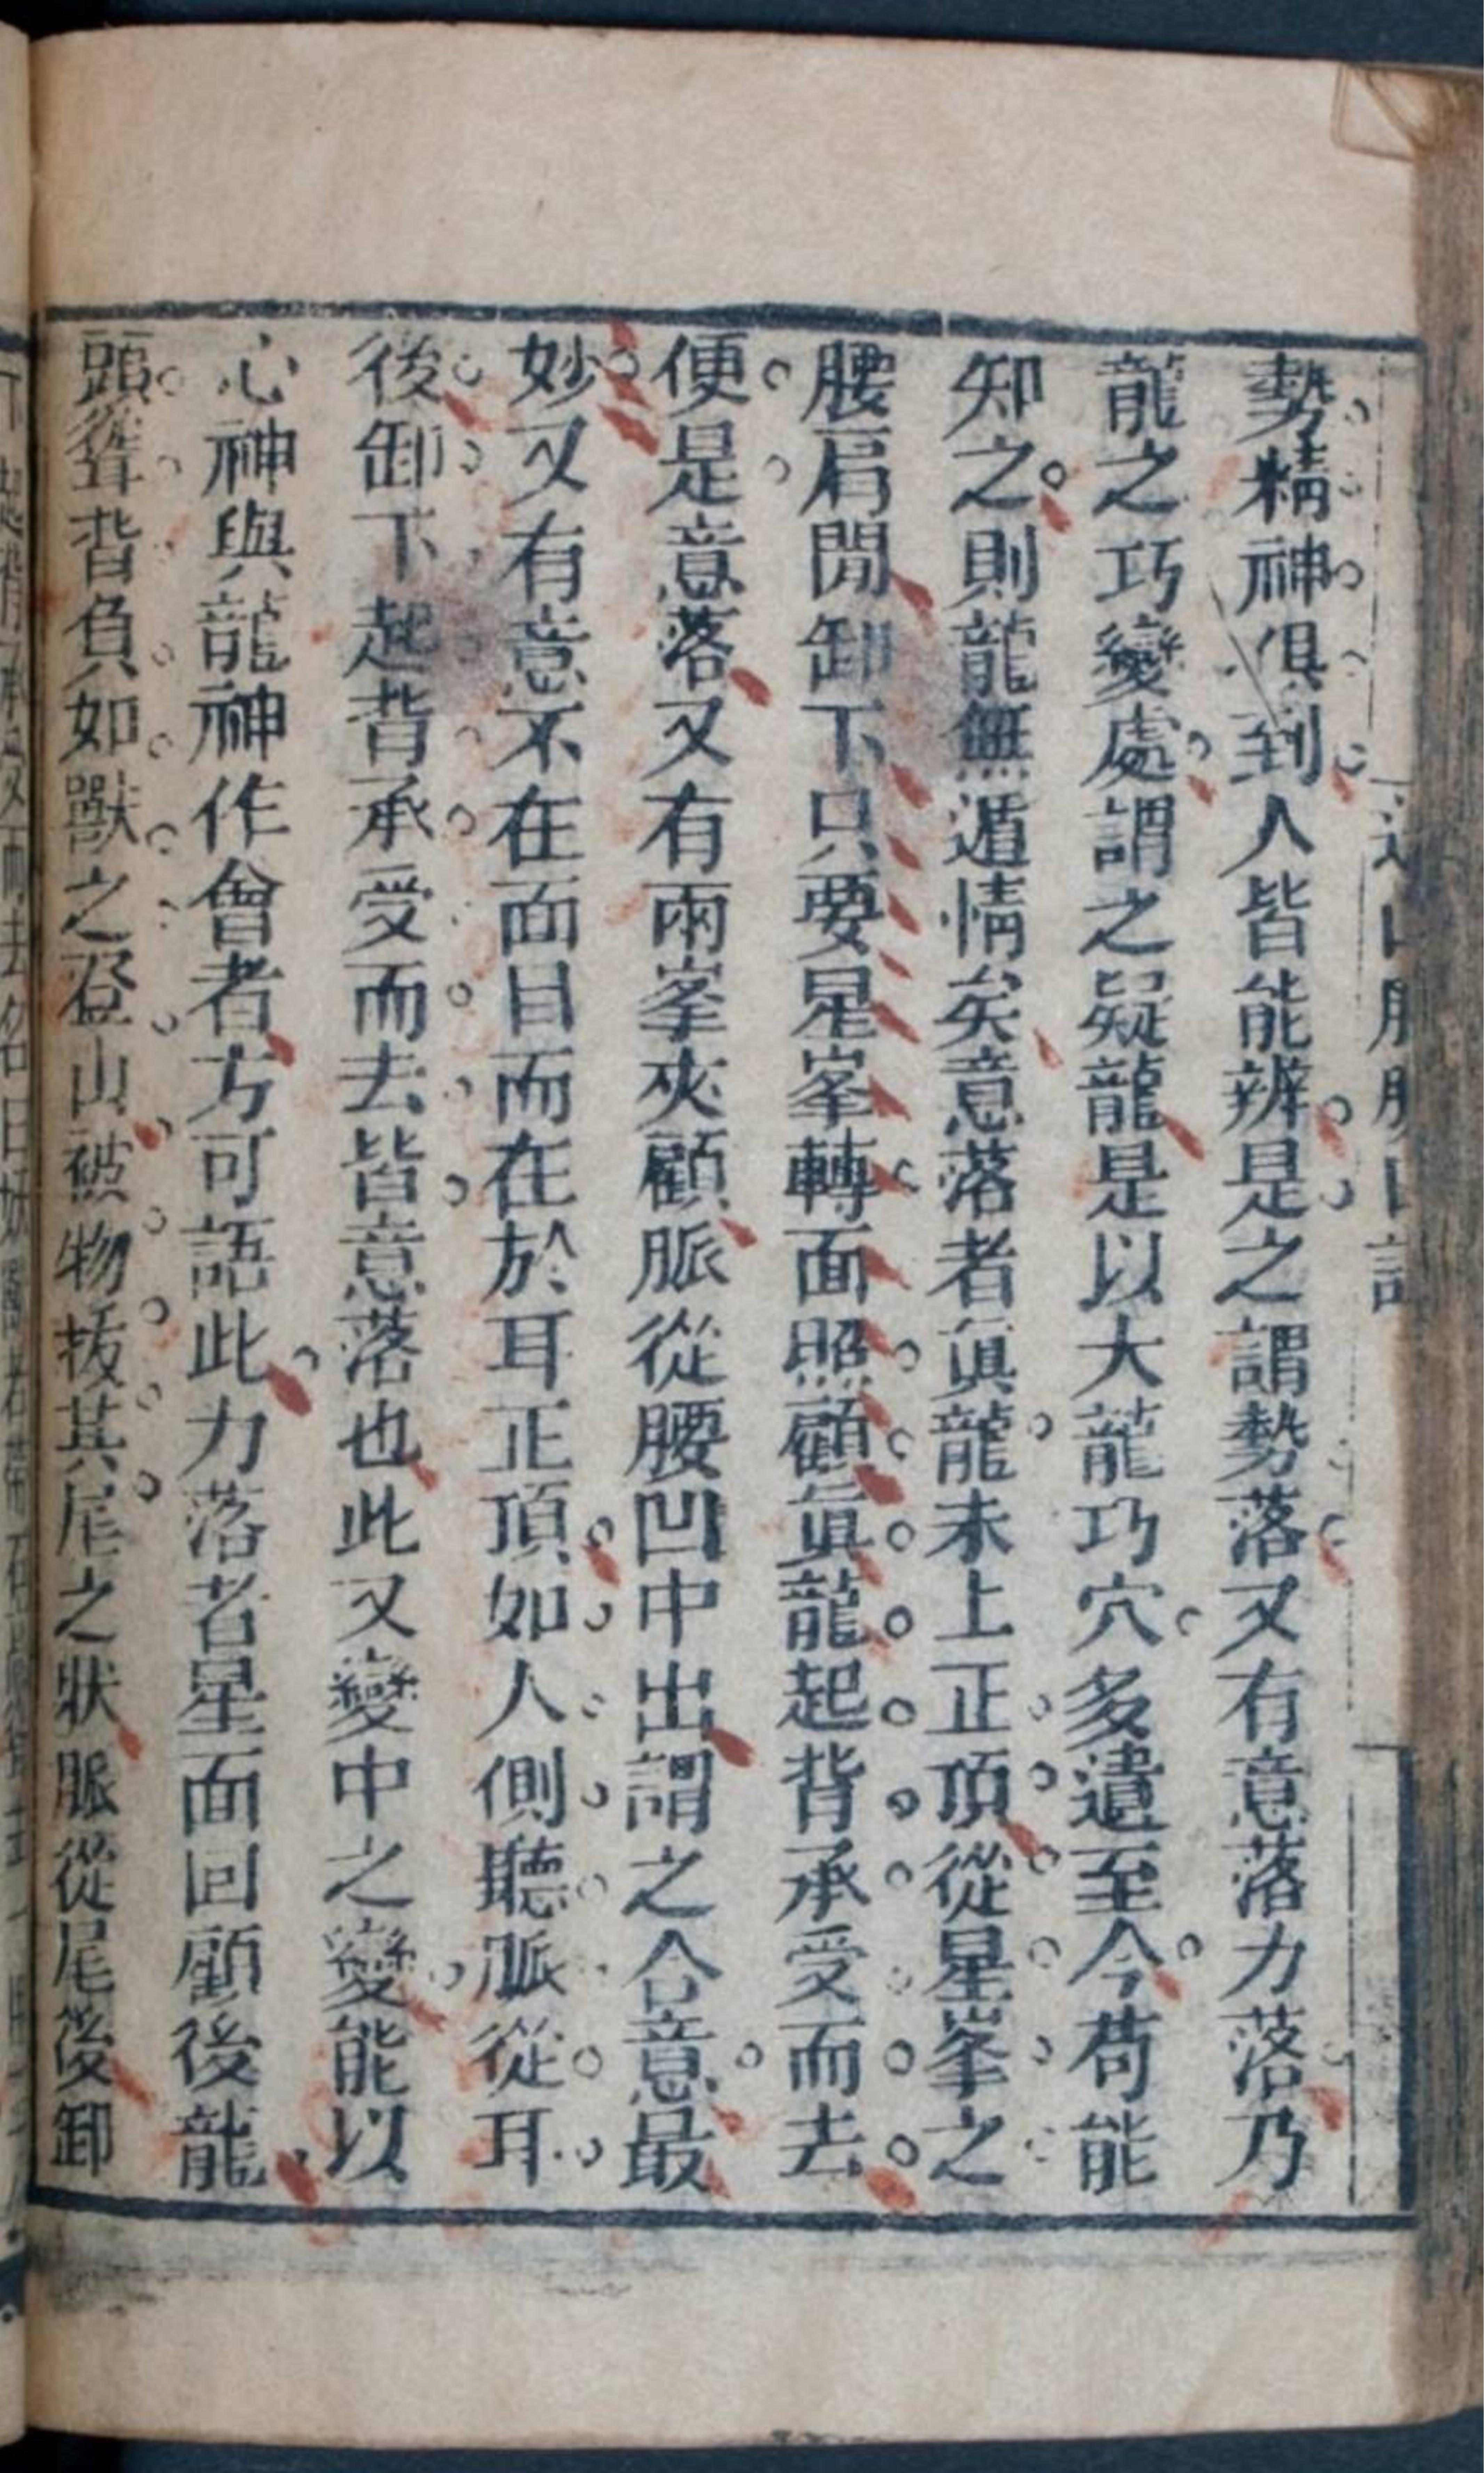 勢精神俱到人皆能辨是之謂勢落又有意落力落乃
龍之巧變處謂之疑龍是以大龍巧穴多遺至今苟能
知之則龍無遁情矣意落者眞龍未上正頂從星峯之
腰肩閒卸下只要星峯轉面照顧眞龍起背承受而去
便是意落又有兩峯夾顧脈從腰凹中出謂之合意最
妙又有意不在面目而在於耳正頂如人側聽脈從耳
後卸下起背承受而去皆意落也此又變中之變能以
心神與龍神作會者方可語此力落者星面回顧後龍
頭聳背負如獸之登山被物拔其尾之狀脈從尾後卸